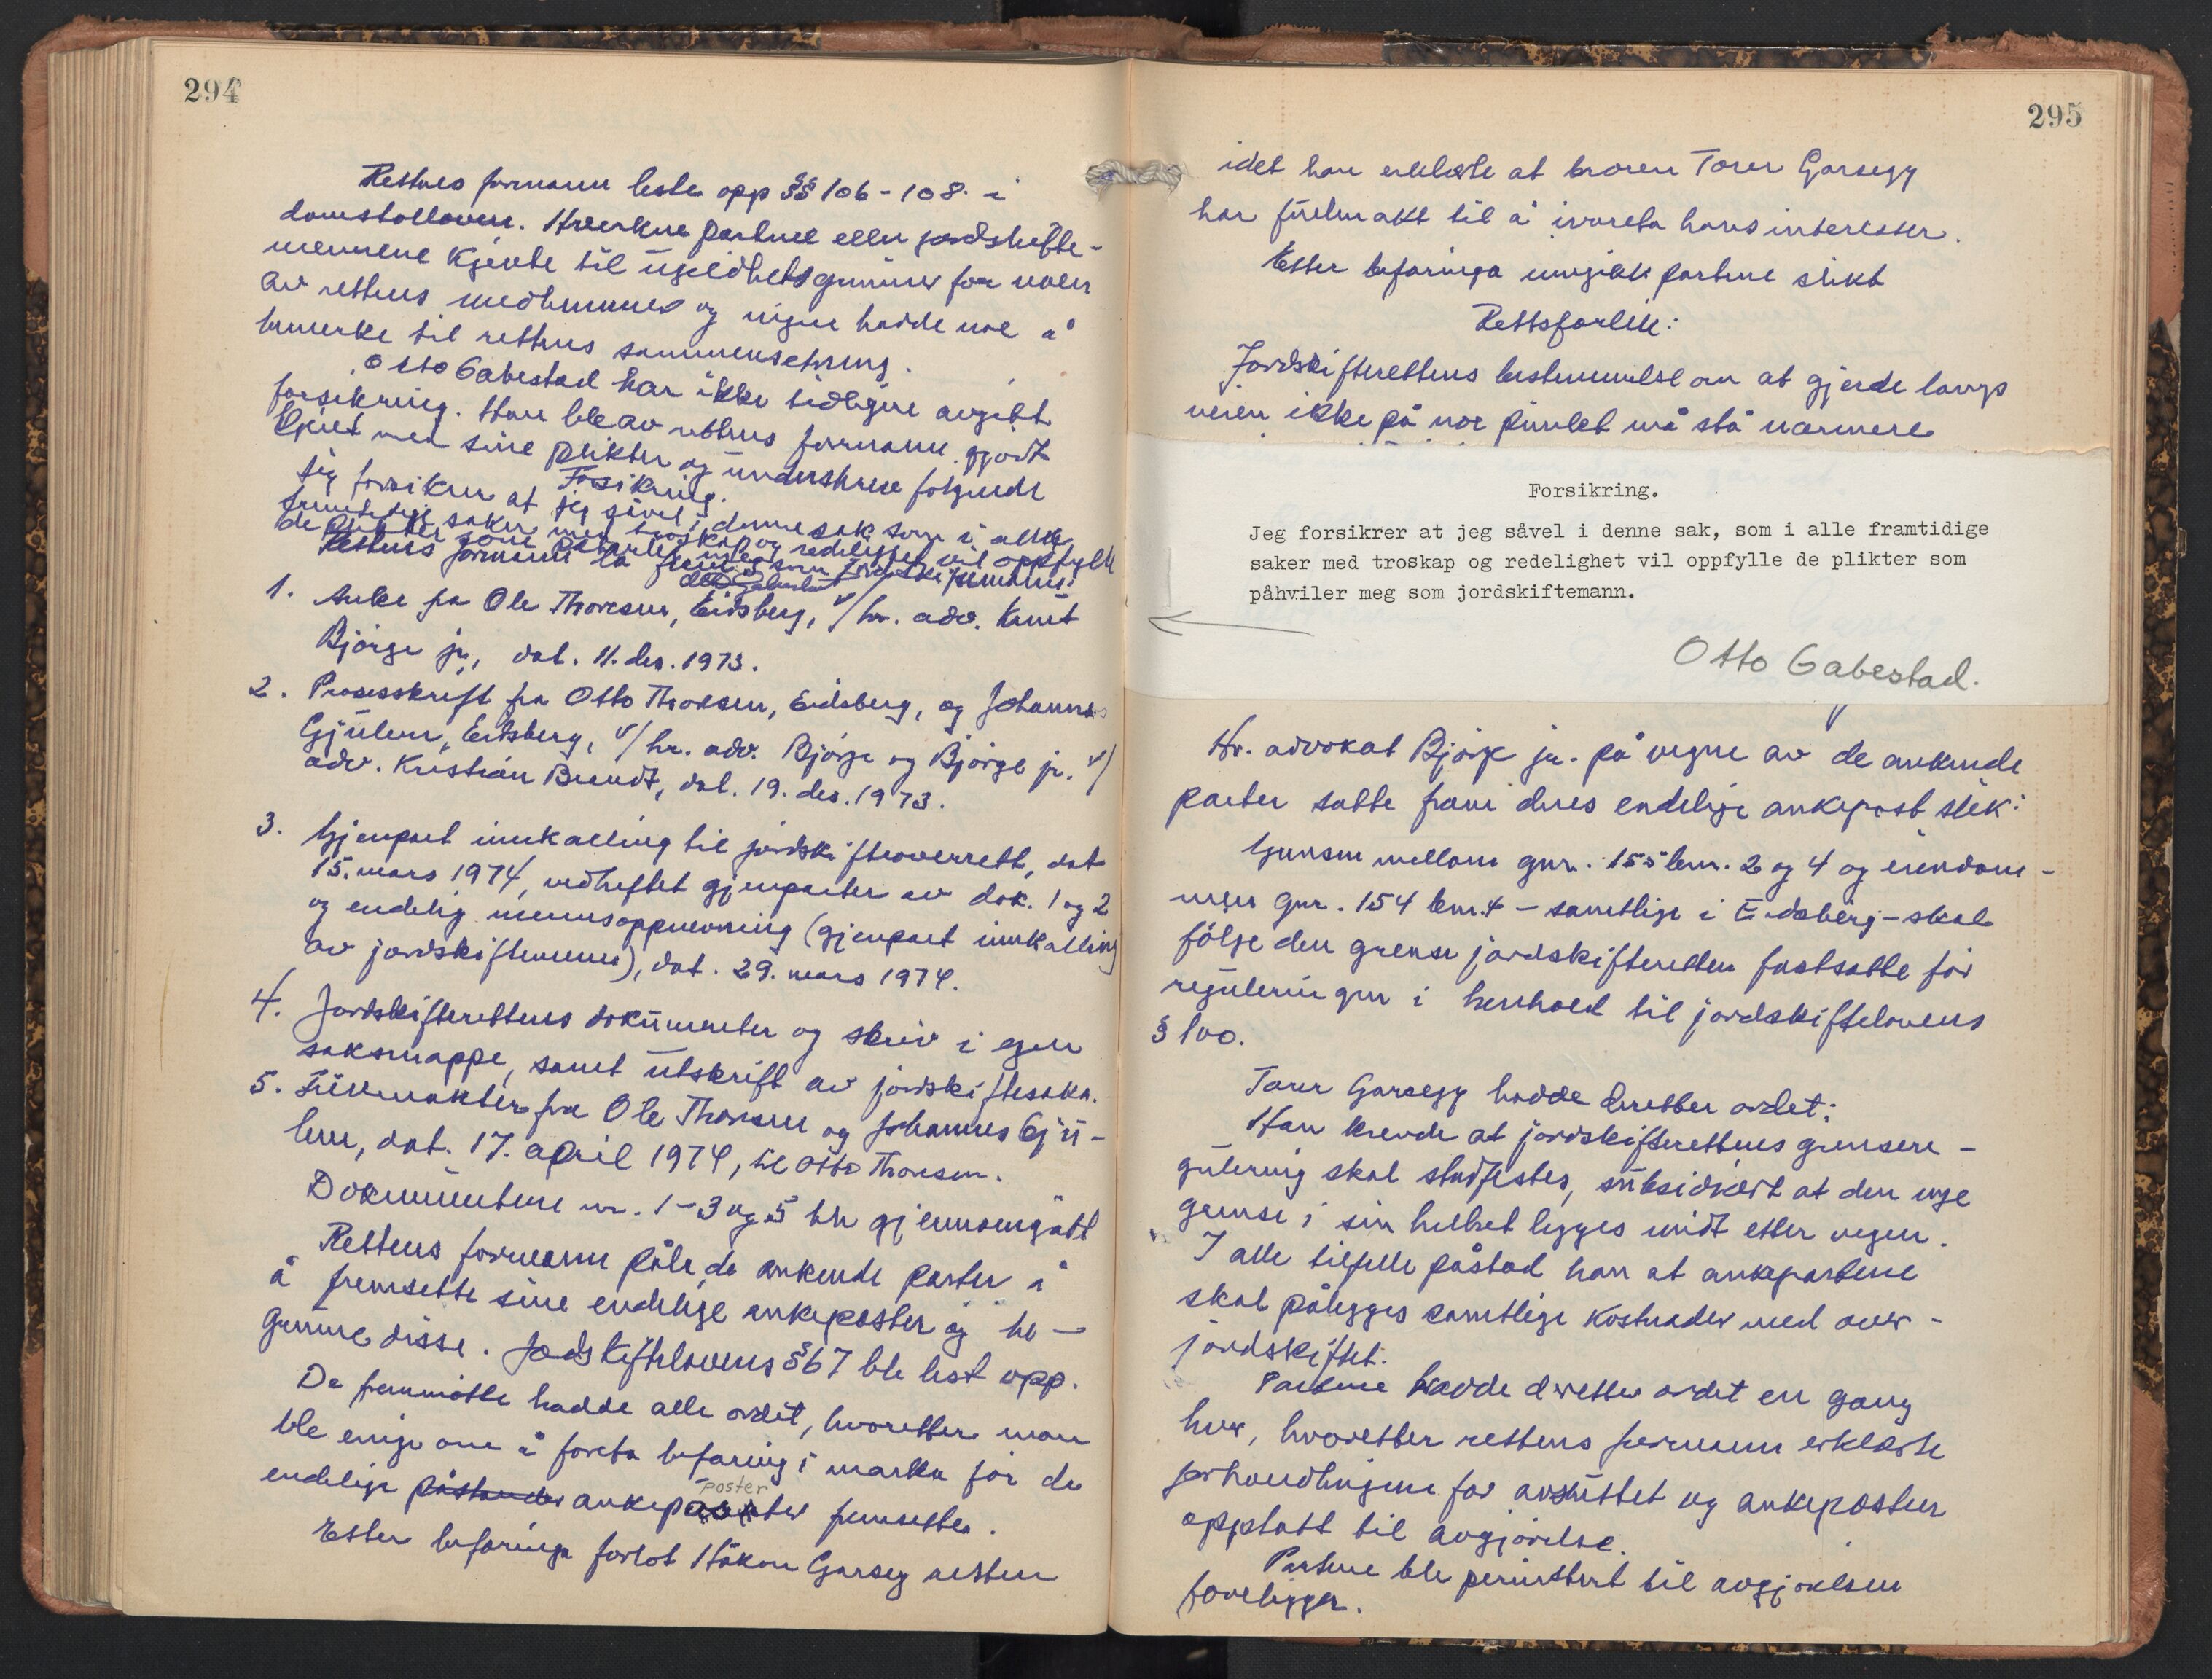 294
Rettens formann leste opp §§ 106-108 i
domstolloven. Hverken partnee eller jordskifte-
mennene kjente til ugildhetsgrunner for noen
av rettens medlemmer og ingen hadde noe å
bemerke til rettens sammensetning.
Otto Gabestad har ikke tidligere avgitt
forsikring. Han ble av rettens formann gjort
kjent med sine plikter og underskrev følgende
Forsikring.
Jeg forsikrer at jeg såvel i denne sak som i alle
framtidige saker med troskap og redelighet vil oppfylle
de plikter som påhviler meg som jordskiftemann.
Rettens formann la fram:
Otto Gabestad
1. Anke fra Ole Thoresen, Eidsberg, v/hr. adv. Knut
Bjørge jr., dat. 11. des. 1973.
2. Prosesskrift fra Otto Thoresen, Eidsberg, og Johannes
Gjulem, Eidsberg, v/hr. adv. Bjørge og Bjørge jr. v/
adv. Kristian Brandt, dat. 19. des. 1973.
3. Gjenpart innkalling til jordskifteoverrett, dat
15. mars 1974, vedheftet gjenparter av dok. 1 og 2
og endelig mennsoppnevning (gjenpart innkalling
av jordskiftemenn), dat. 29. mars 1974.
4. Jordskifterettens dokumenter og skriv i egen
saksmappe, samt utskrift av jordskiftesaka.
5. Fullmakter fra Ole Thoresen og Johannes Gju-
lem, dat. 17. april 1974, til Otto Thoresen.
Dokumentene nr. 1-3 og 5 ble gjennomgått
Rettens formann påla de ankende parter å
å fremsette sine endelige ankeposter og be-
grunne disse. Jordskiftelovens § 67 ble lest opp.
De frammøtte hadde alle ordet, hvoretter man
ble enige om å foreta befaring i marka før de
endelige påstander ankeposter fremsettes.
poster
Etter befaringa forlot Håkon Garseg retten
295
idet han erklærte at broren Torer Garsegg
har fullmakt til å ivareta hans interesser.
Etter befaringa inngikk partene slikt
Rettsforlik:
Jordskifterettens bestemmelse om at gjerde langs
veien ikke på noe punkt må stå nærmere
Forsikring.
Jeg forsikrer at jeg såvel i denne sak, som i alle framtidige
saker med troskap og redelighet vil oppfylle de plikter som
påhviler meg som jordskiftemann.
Otto Gabestad.
Hr. advokat Bjørge jr. på vegne av de ankende
parter satte fram deres endelige ankepost slik:
Grensen mellom gnr. 155 bnr. 2 og 4 og eiendom-
men gnr. 154 bnr. 4 - samtlige i Eidsberg - skal
følge den grense jordskifteretten fastsatte før
reguleringen i henhold til jordskiftelovens
§ 100.
Torer Garsegg hadde deretter ordet:
Han krevde at jordskifterettens grensere-
gulering skal stadfestes, subsidiært at den nye
grense i sin helhet legges midt etter vegen.
I alle tilfelle påstod han at ankepartene
skal pålegges samtlige kostnader med over-
jordskiftet.
Partene hadde deretter ordet en gang
hver, hvoretter rettens formann erklærte
forhandlingene for avsluttet og ankeposten
opptatt til avgjørelse.
Partene ble permittert til avgjørelsen
foreligger.